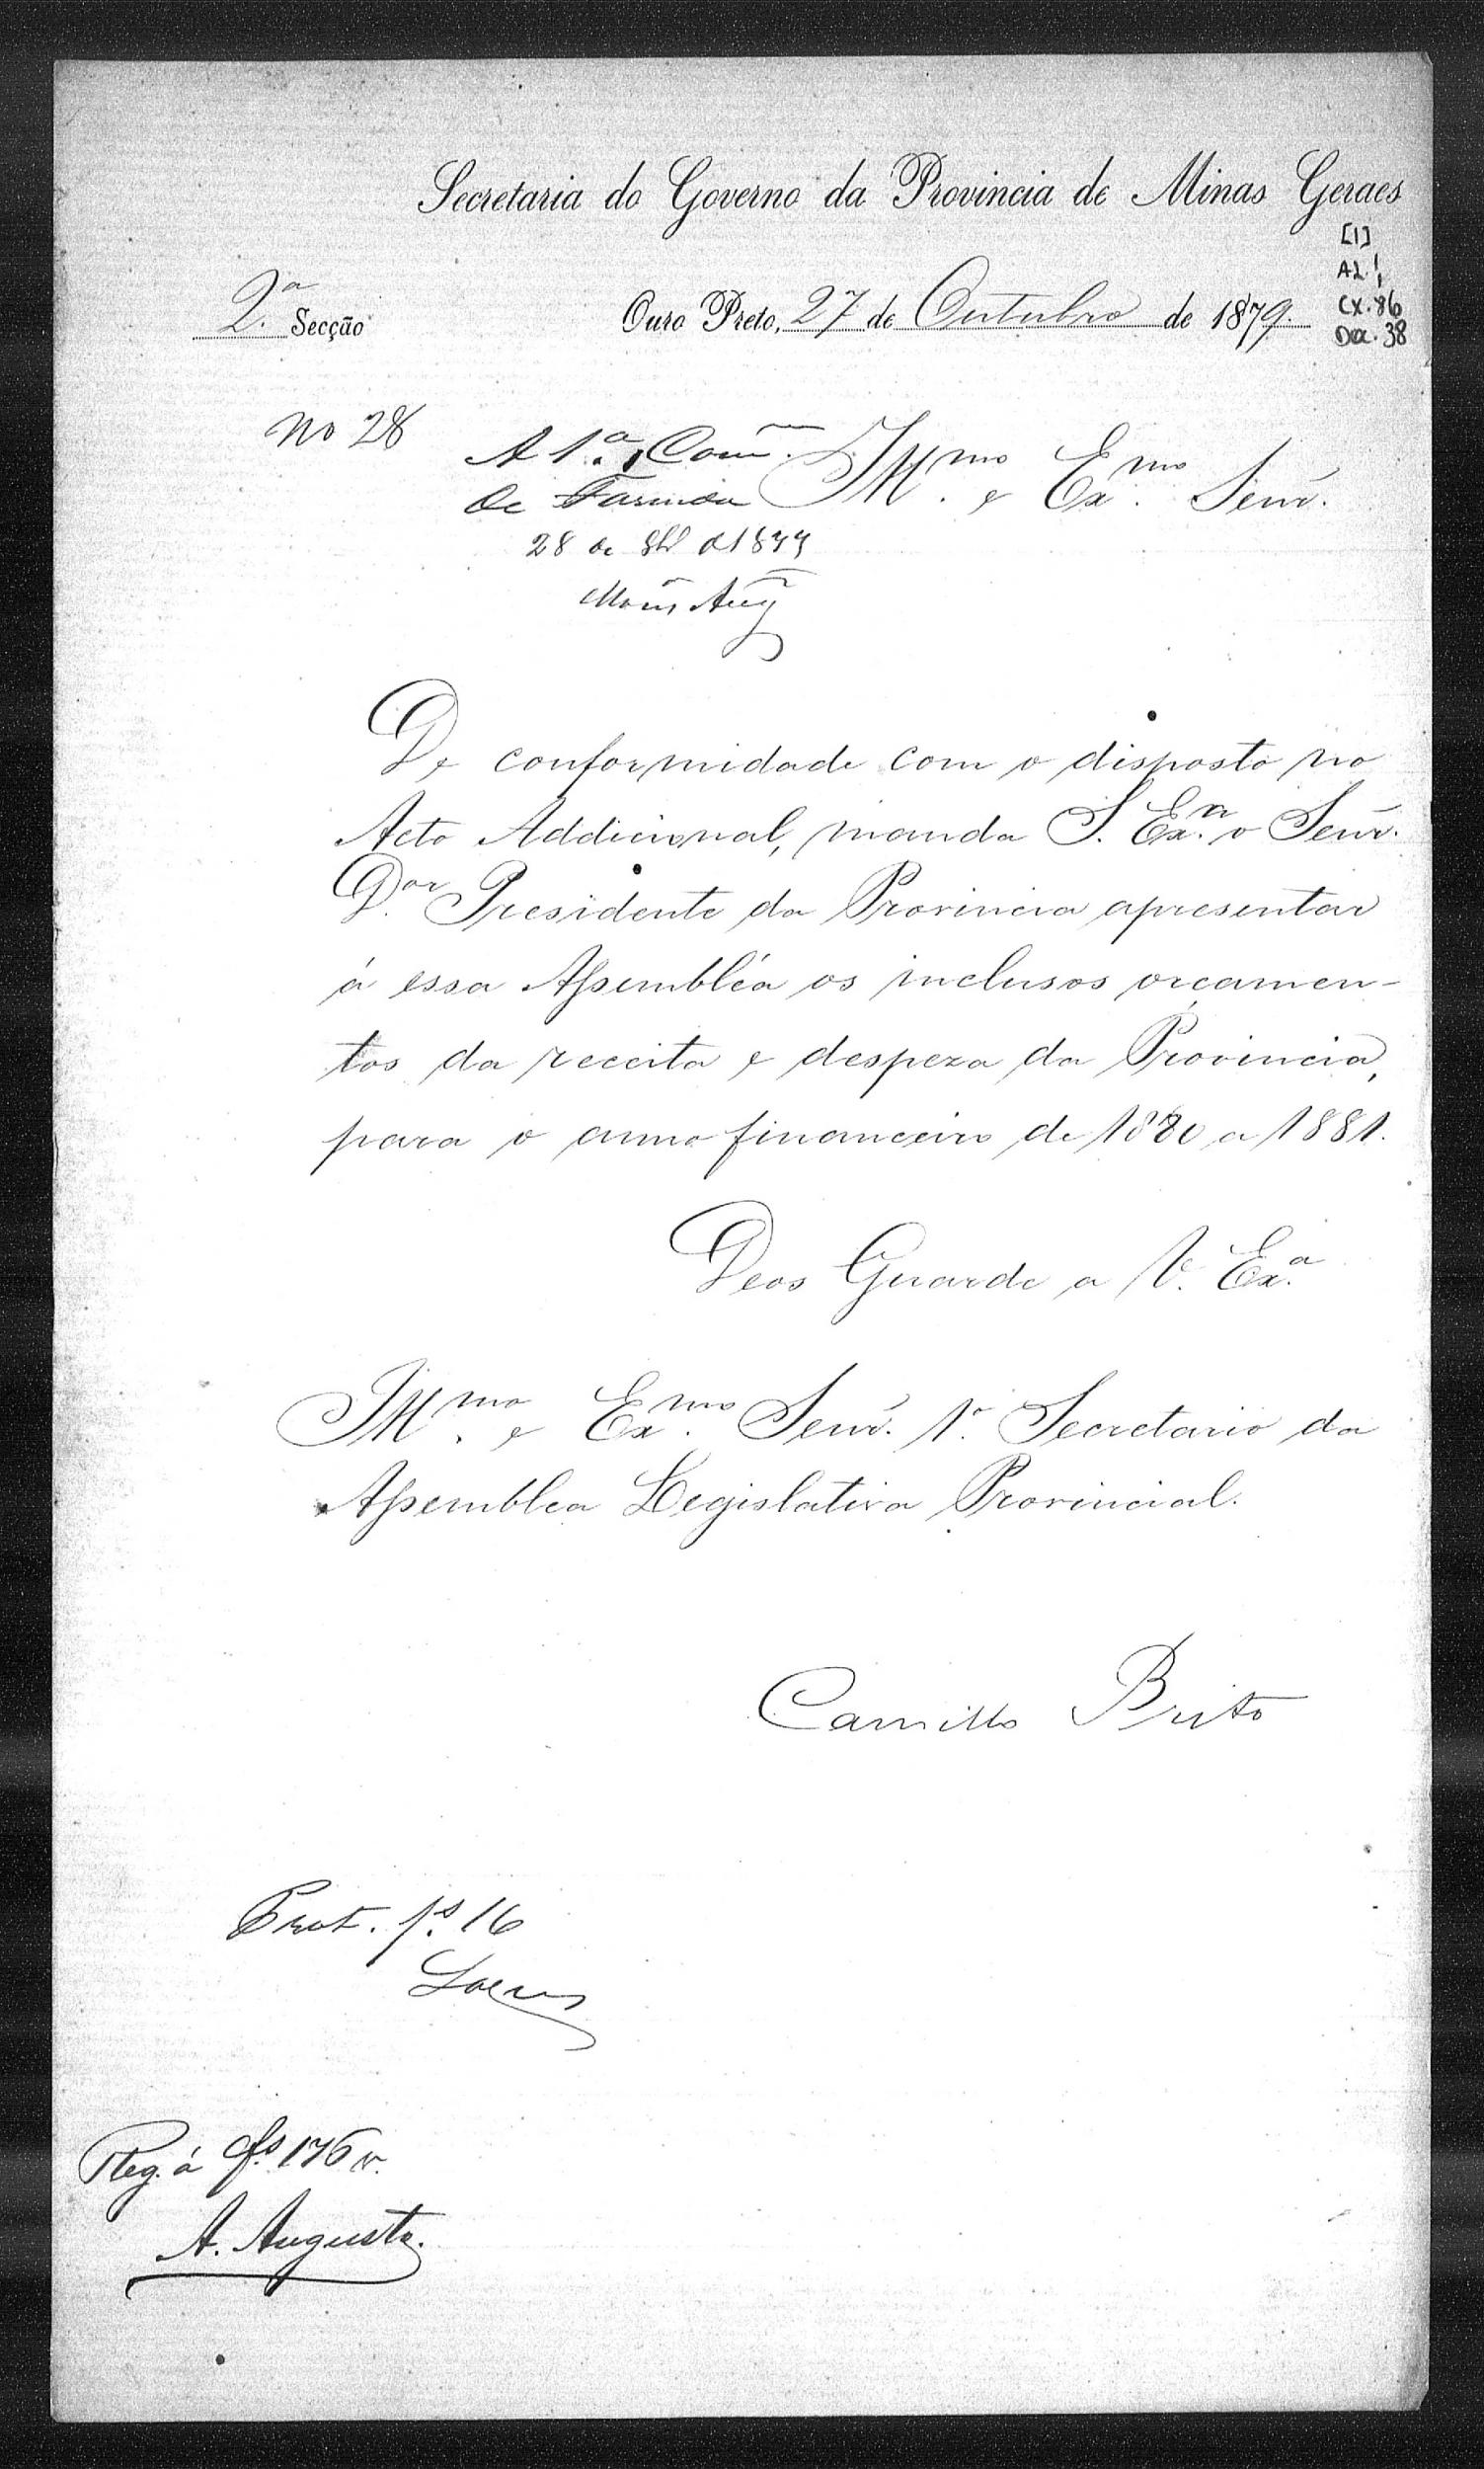 Secretaria do Governo da Provincia de Minas Geraes
[1]
AL.1,
CX.86
Doc.38
2.ª Secção
Ouro Preto, 27 de Outubro de 1879.
No 28
A 1.ª Com.
de Fazenda
28 de 8br.º d 1879
Ill.mo e Ex.mo Senr.
De conformidade com o disposto no
Acto Addicional, manda S. Ex.a o Senr.
D.or Presidente da Provincia apresentar
á essa Assembléa os inclusos orçamen-
tos da receita e despeza da Provincia,
para o anno financeiro de 1880 a 1881.
Deos Guarde a V. Ex.a
Ill.mo e Ex.mo Senr. 1.º Secretario da
Assemblea Legislativa Provincial.
Camillo Brito
Prot. fs. 16
Reg. á fs. 176 v.
A. Augusto.